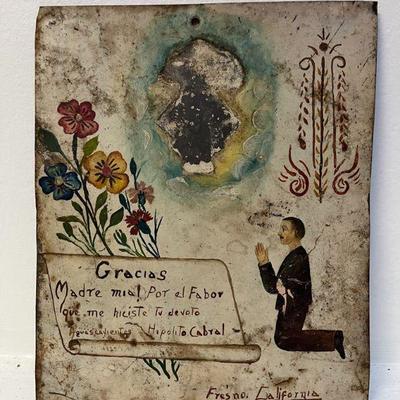 Gracias
Madre mia! Por el Fabor
que me hiciste tu devoto
Aguascalientes Hipolito Cabral
Fresno. California